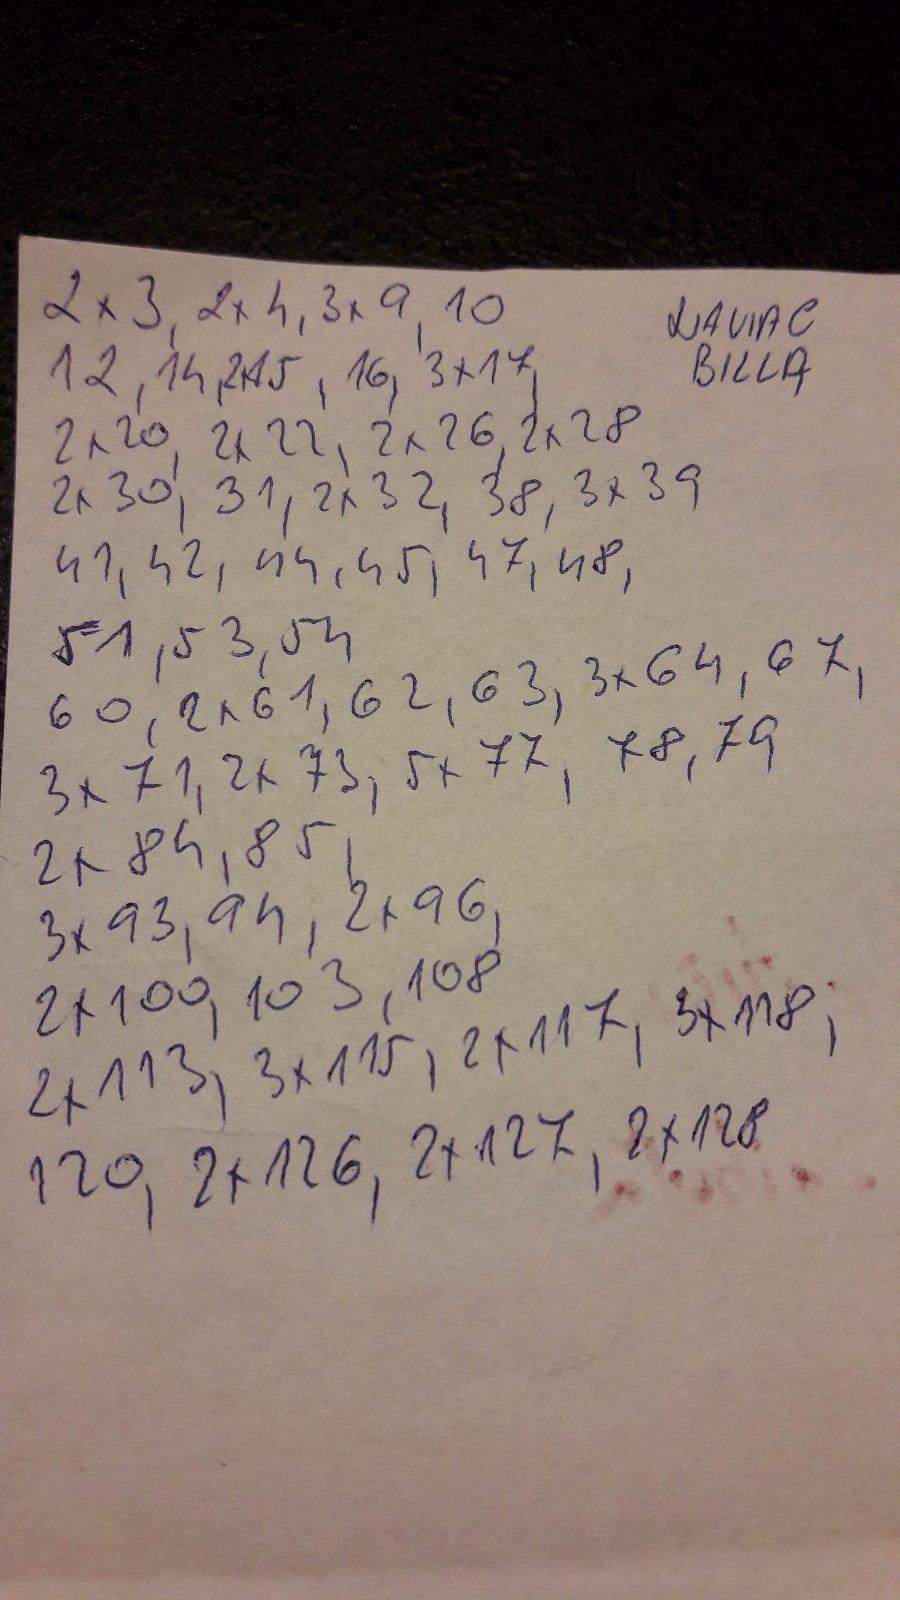 2x3, 2x4, 3x9, 10
NAVIAC
BILLA
12, 14, 2x15, 16, 3x17,
2x20, 2x22, 2x26, 2x28
2x30, 31, 2x32, 38, 3x39
41, 42, 44, 45, 47, 48,
51, 53, 54
60, 2x61, 62, 63, 3x64, 67,
3x71, 2x73, 5x77, 78, 79
2x84, 85,
3x93, 94, 2x96,
2x100, 103, 108
2x113, 3x115, 2x117, 3x118,
120, 2x126, 2x127, 2x128